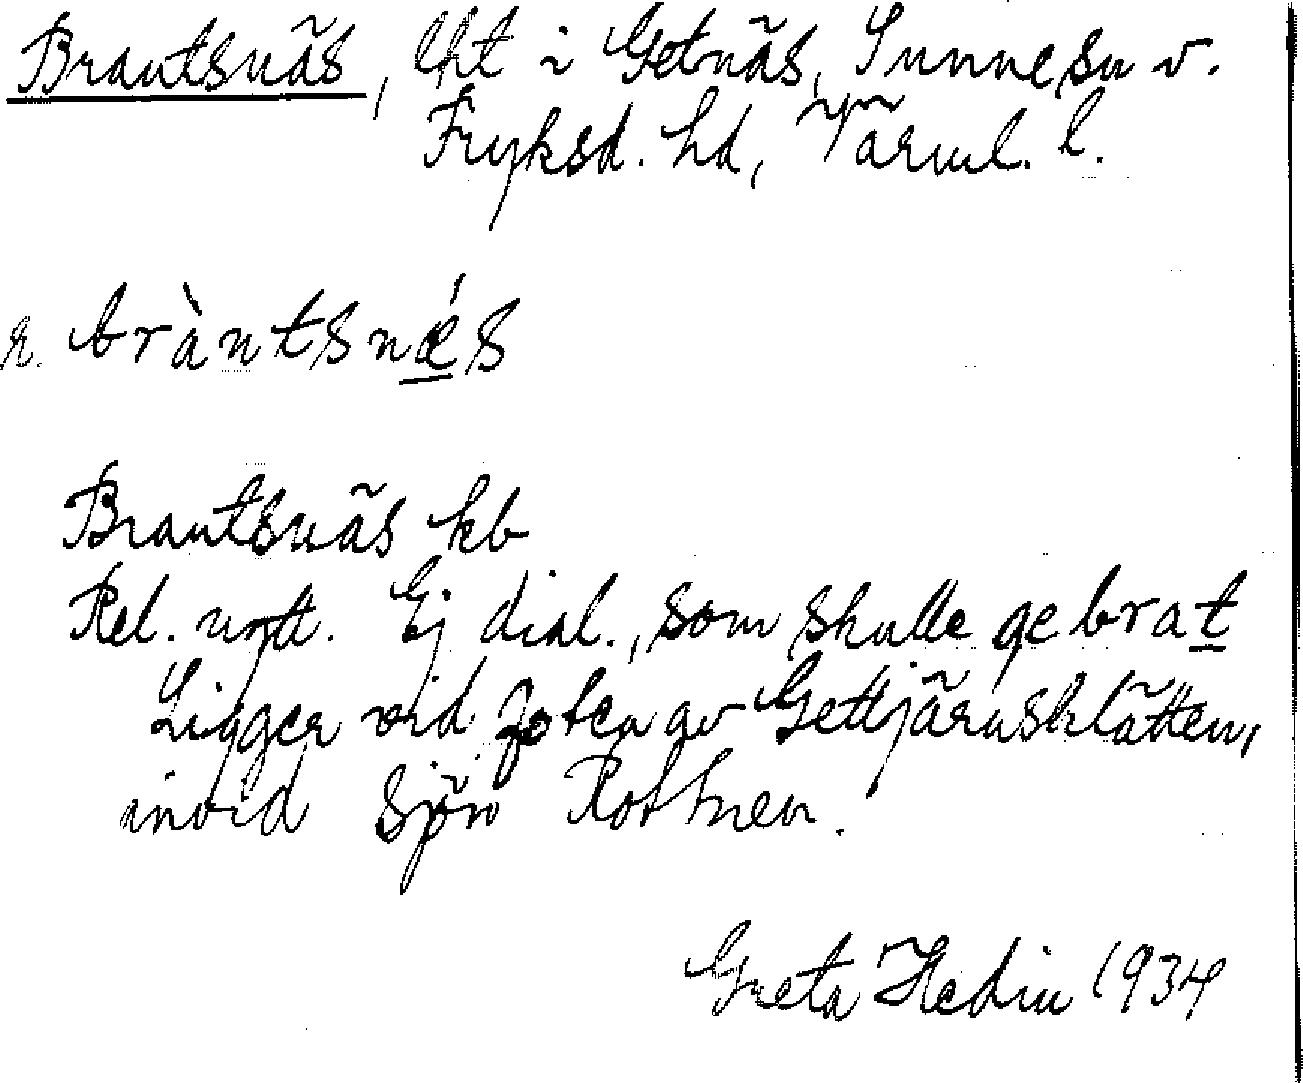 Brantsnäs, lht i Getnäs, Sunne sn v.
Fryksd. hd, Värml. l.
r. bràntsnǽs
Brantsnäs kb
Rel. nytt. Ej dial., som skulle ge brat
Ligger vid foten av Gettjärnsklätten,
invid sjön Rottnen.
Greta Hedin 1934